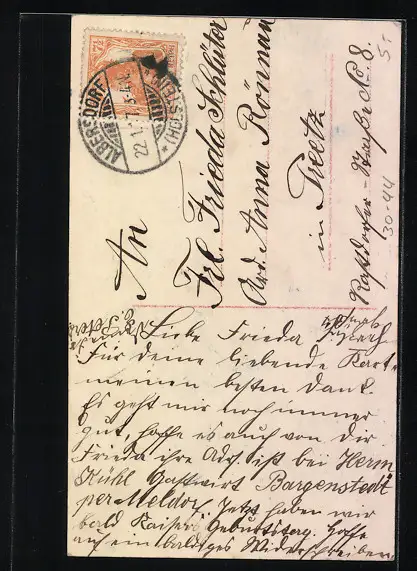 ALBERSDORF
22.1.17. 5-6 N.
(HOLSTEIN)
7½
5.-
An
Frl. Frieda Schlüter
Adr. Anna Rönnau
in Preetz
Straße No. 8.
30-44
Liebe Frieda
Für deine liebende Karte
meinen besten Dank.
Es geht mir noch immer
gut, hoffe es auch von dir
Frieda ihre Adr. ist bei Herrn
Kühl Gastwirt Bargenstedt
per Meldorf. Jetzt haben wir
bald Kaisers Geburtstag. Hoffe
auf ein baldiges Wiederschreiben.